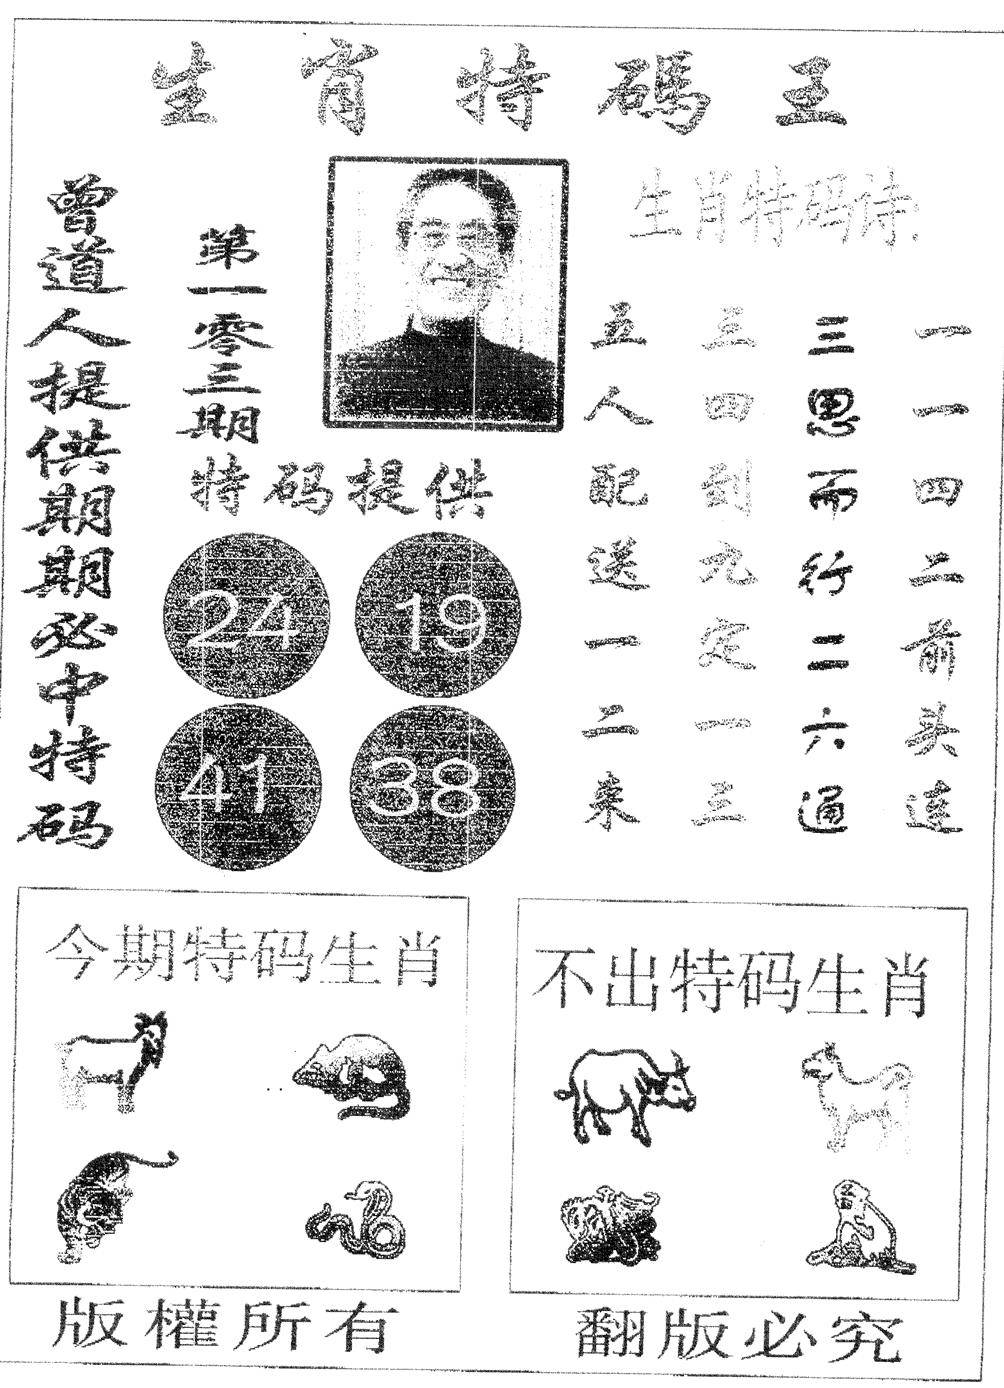 生肖特碼王
曾道人提供期期必中特码
第一零三期
生肖特码诗:
一一四二前头连
三思而行二六通
三四到九定一三
五人配送一二来
特码提供
24 19
41 38
今期特码生肖
不出特码生肖
版權所有
翻版必究